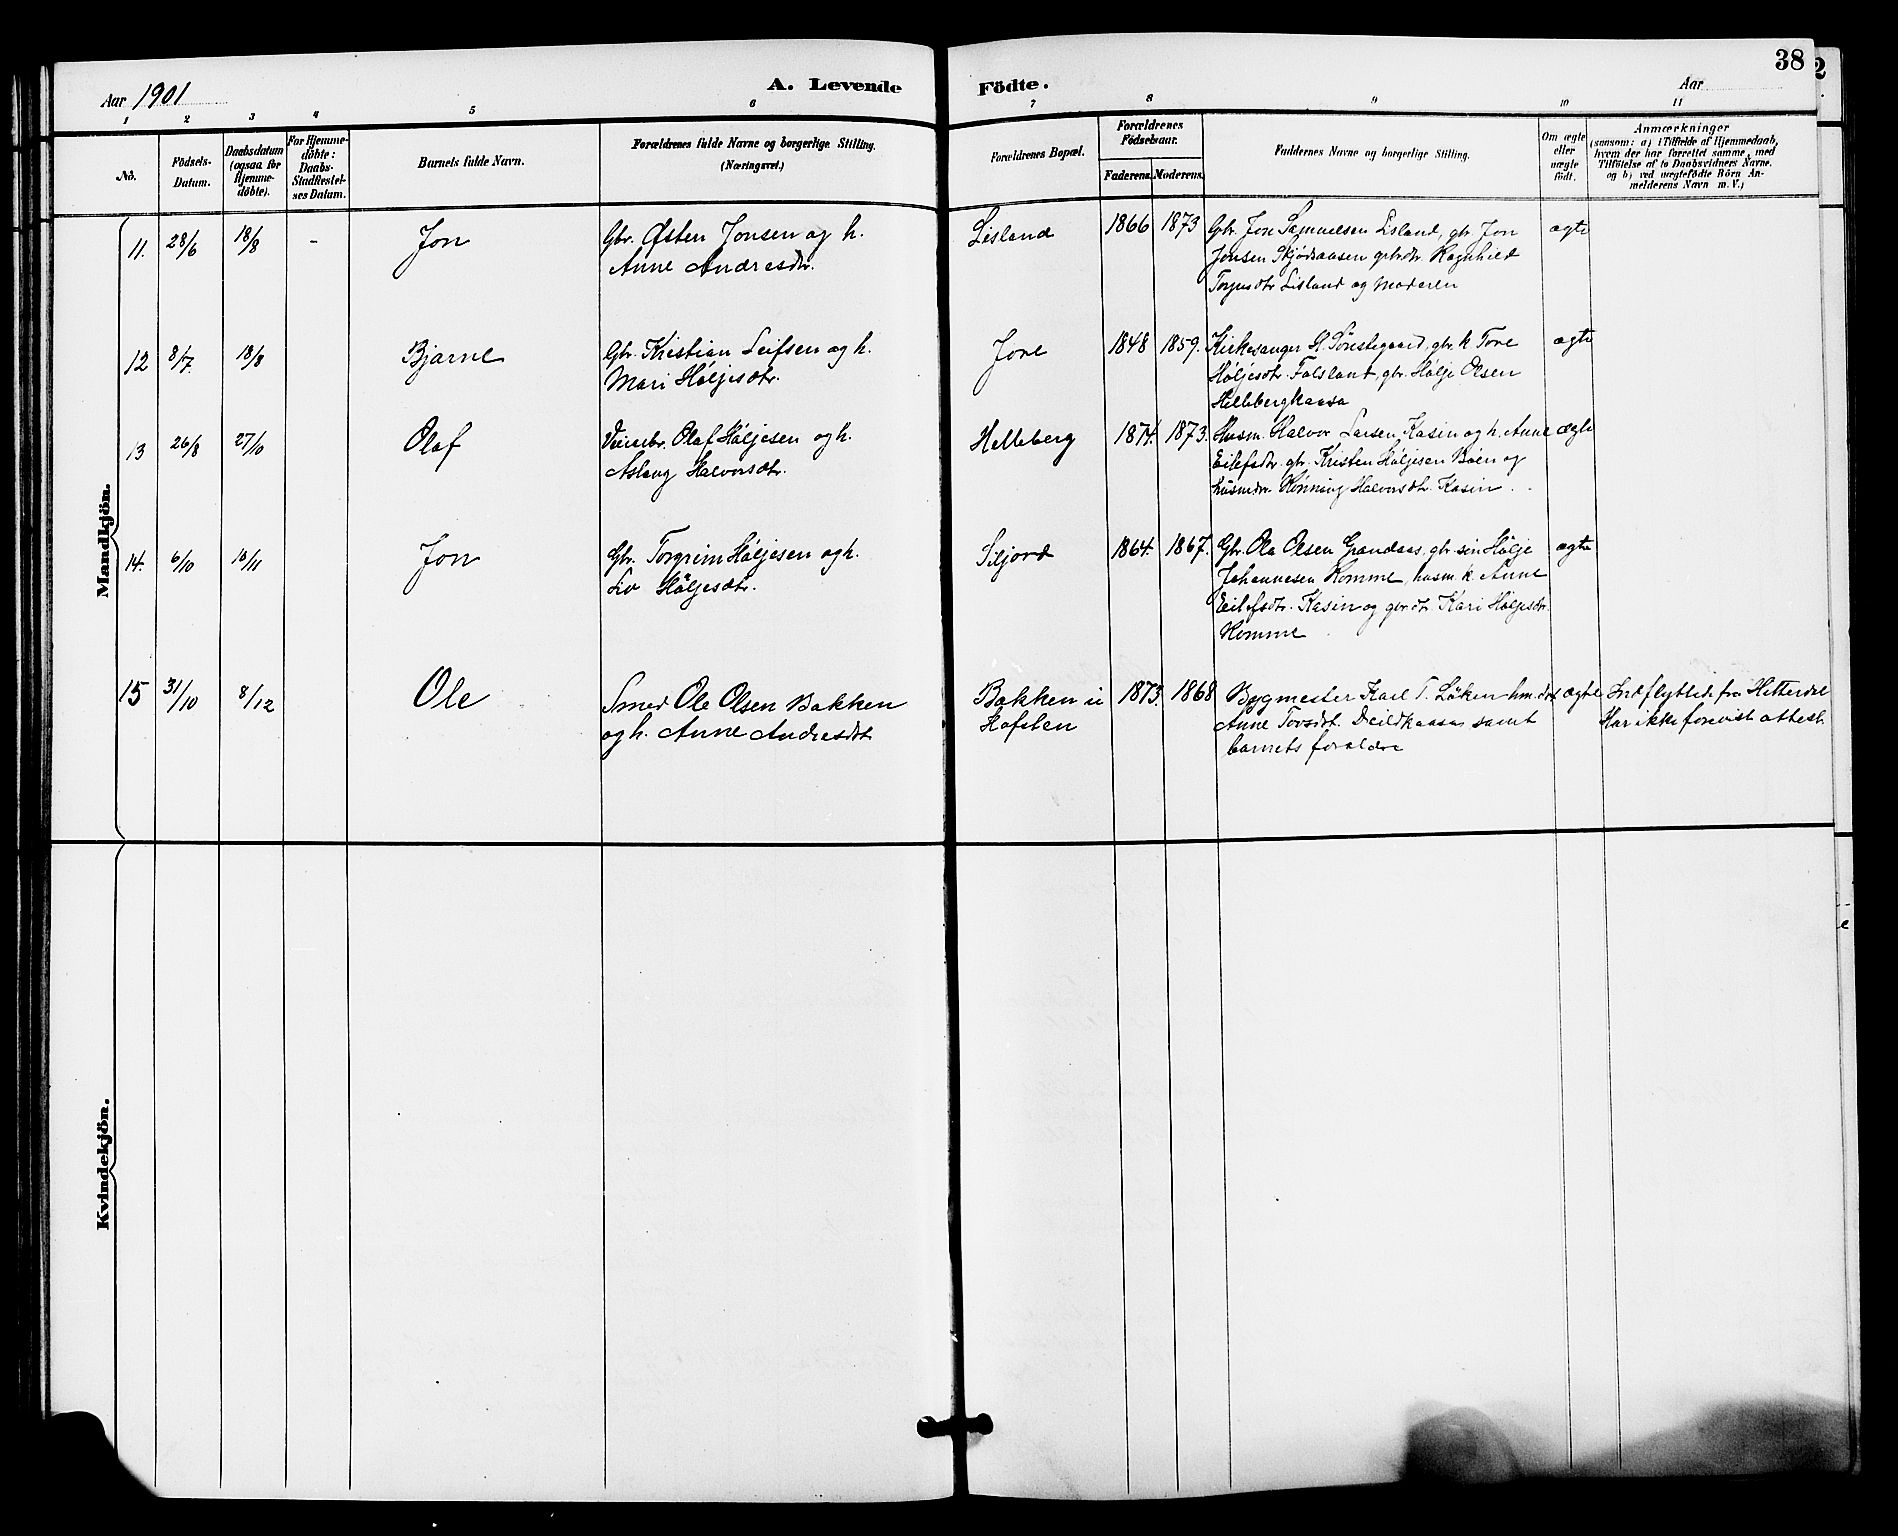 38
Aar 1901
A. Levende Födte.
Aar
1 2 3 4 5 6 7 8 9 10 11
No.
Födsels-
Datum.
Daabsdatum
(ogsaa for
Hjemme-
döbte).
For Hjemme-
döbte:
Daabs-
Stadfæstel-
ses Datum.
Barnets fulde Navn.
Forældrenes fulde Navne og borgerlige Stilling.
(Næringsvei.)
Forældrenes Bopæl.
Forældrenes
Födselsaar.
Faderens. Moderens.
Faddernes Navne og borgerlige Stilling.
Om ægte
eller
uægte
födt.
Anmærkninger
(saasom: a) i Tilfælde af Hjemmedaab,
hvem der har forrettet samme, med
Tilföielse af to Daabsvidners Navne,
og b) ved uægtefödte Börn An-
melderens Navn m. V.)
Mandkjön.
11. 28/6 18/8 - Jon
Gbr. Østen Jonsen og h.
Anne Andresdtr.
Lisland 1866 1873
Gbr. Jon Samuelsen Lisland, gbr Jon
Jonsen Skjødsaasen gbrdtr. Ragnhild
Torjusdtr Lisland og Moderen
ægte
12 8/7. 18/8 Bjarne
Gbr. Kristian Leifsen og h.
Mari Høljesdtr.
Jore 1848 1859.
Kirkesanger H. Sønstegaard, gbr. k Tone
Høljesdtr. Falsland, gbr. Hølje Olsen
Hellebergkaasa
ægte
13 26/8 27/10 Olaf
Veiarbr. Olaf Høljesen og h.
Aslaug Halvorsdtr.
Helleberg 1874. 1873.
Husm. Halvor Larsen Kasin og h. Anne
Eilefsdtr. gbr. Kristen Høljesen Bøen og
husmdtr. Rønnaug Halvorsdtr. Kasin.
ægte
14. 6/10 10/11 Jon
Gbr. Torgrim Høljesen og h.
Liv Høljesdtr.
Siljord 1864. 1867.
Gbr. Ola Olsen Grandaas, gbr. søn Hølje
Johannesen Homme, husm. k. Anne
Eilefsdtr. Kasin og gbr dtr. Kari Høljesdtr.
Homme
ægte
15 31/10 8/12 Ole
Smed Ole Olsen Bakken
og h. Anne Andresdtr
Bakken u
Hafsten
1873. 1868
Bygmester Karl T. Løken hm. dtr
Anne Tovsdtr. Deildkaasa samt
barnets forældre
ægte
Indflyttede fra Hitterdal
Har ikke forevist attest
Kvindekjön.